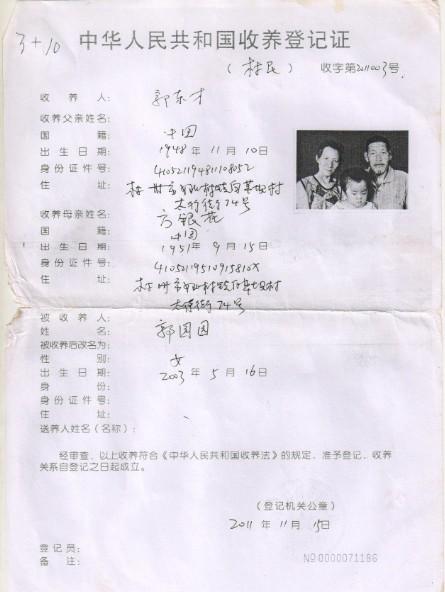 3+10
中华人民共和国收养登记证
(林民) 收字第2011003号
收养人: 郭东才
收养父亲姓名:
国籍: 中国
出生日期: 1948年11月10日
身份证件号: 410521194811108052
住址: 林州市
大行街74号
收养母亲姓名: 方银花
国籍: 中国
出生日期: 1951年9月15日
身份证件号: 41052119510915810X
住址: 林州市
74号
被收养人
姓名: 郭园园
被收养后改名为:
性别: 女
出生日期: 2003年5月16日
身份:
身份证件号:
住址:
送养人姓名(名称):
经审查、以上收养符合《中华人民共和国收养法》的规定、准予登记、收养
关系自登记之日起成立。
(登记机关公章)
2011年11月15日
登记员:
备注:
NO0000071186